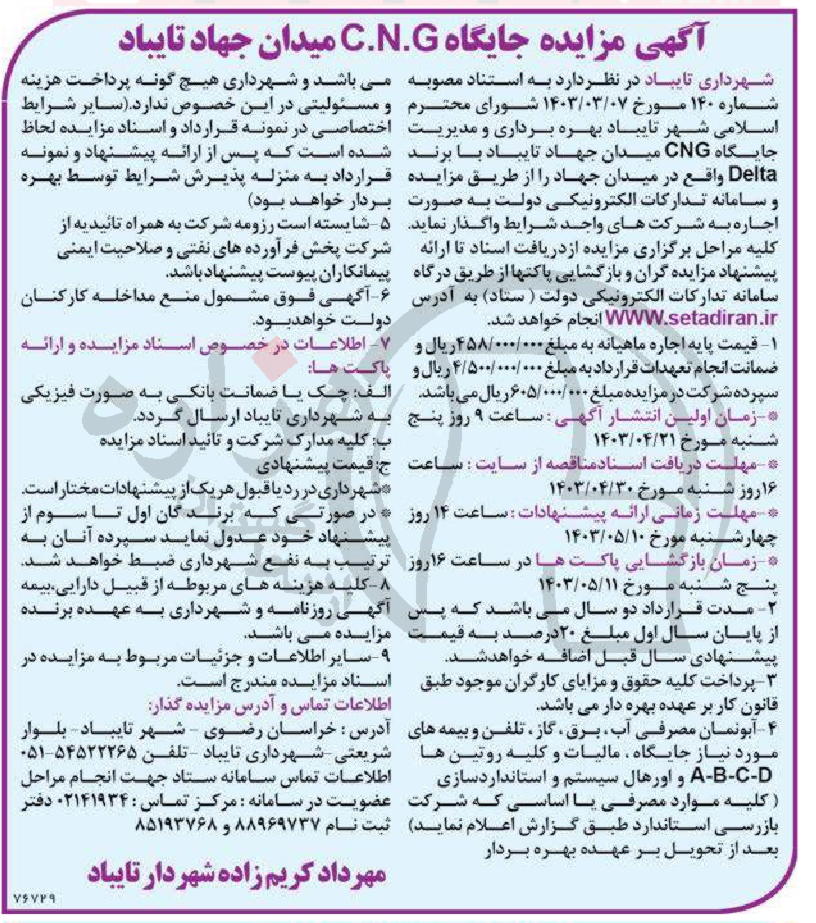 آگهی مزایده جایگاه C.N.G میدان جهاد تایباد
شهرداری تایباد در نظر دارد به استناد مصوبه
شماره ۱۴۰ مورخ ۱۴۰۳/۰۳/۰۷ شورای محترم
اسلامی شهر تایباد بهره برداری و مدیریت
جایگاه CNG میدان جهاد تایباد با برند
Delta واقع در میدان جهاد را از طریق مزایده
و سامانه تدارکات الکترونیکی دولت به صورت
اجاره به شرکت های واجد شرایط واگذار نماید.
کلیه مراحل برگزاری مزایده از دریافت اسناد تا ارائه
پیشنهاد مزایده گران و بازگشایی پاکتها از طریق درگاه
سامانه تدارکات الکترونیکی دولت ( ستاد) به آدرس
WWW.setadiran.ir انجام خواهد شد.
۱- قیمت پایه اجاره ماهیانه به مبلغ ۴۵۸/۰۰۰/۰۰۰ ریال و
ضمانت انجام تعهدات قرارداد به مبلغ ۴/۵۰۰/۰۰۰/۰۰۰ ریال و
سپرده شرکت در مزایده مبلغ ۶۰۵/۰۰۰/۰۰۰ ریال می باشد.
*-زمان اولین انتشار آگهی : ساعت ۹ روز پنج
شنبه مورخ ۱۴۰۳/۰۴/۲۱
*-مهلت دریافت اسناد مناقصه از سایت : ساعت
۱۶ روز شنبه مورخ ۱۴۰۳/۰۴/۳۰
*-مهلت زمانی ارائه پیشنهادات : ساعت ۱۴ روز
چهارشنبه مورخ ۱۴۰۳/۰۵/۱۰
*-زمان بازگشایی پاکت ها در ساعت ۱۶ روز
پنج شنبه مورخ ۱۴۰۳/۰۵/۱۱
۲- مدت قرارداد دو سال می باشد که پس
از پایان سال اول مبلغ ۲۰درصد به قیمت
پیشنهادی سال قبل اضافه خواهدشد.
۳-پرداخت کلیه حقوق و مزایای کارگران موجود طبق
قانون کار بر عهده بهره دار می باشد.
۴-آبونمان مصرفی آب، برق، گاز، تلفن و بیمه های
مورد نیاز جایگاه، مالیات و کلیه روتین ها
A-B-C-D و اورهال سیستم و استانداردسازی
( کلیه موارد مصرفی یا اساسی که شرکت
بازرسی استاندارد طبق گزارش اعلام نماید)
بعد از تحویل بر عهده بهره بردار
می باشد و شهرداری هیچ گونه پرداخت هزینه
و مسئولیتی در این خصوص ندارد.(سایر شرایط
اختصاصی در نمونه قرارداد و اسناد مزایده لحاظ
شده است که پس از ارائه پیشنهاد و نمونه
قرارداد به منزله پذیرش شرایط توسط بهره
بردار خواهد بود)
۵-شایسته است رزومه شرکت به همراه تائیدیه از
شرکت پخش فرآورده های نفتی و صلاحیت ایمنی
پیمانکاران پیوست پیشنهاد باشد.
۶-آگهی فوق مشمول منع مداخله کارکنان
دولت خواهدبود.
۷- اطلاعات در خصوص اسناد مزایده و ارائه
پاکت ها:
الف: چک یا ضمانت بانکی به صورت فیزیکی
به شهرداری تایباد ارسال گردد.
ب: کلیه مدارک شرکت و تائید اسناد مزایده
ج: قیمت پیشنهادی
*شهرداری در رد یا قبول هر یک از پیشنهادات مختار است.
* در صورتی که برندگان اول تا سوم از
پیشنهاد خود عدول نماید سپرده آنان به
ترتیب به نفع شهرداری ضبط خواهد شد.
۸-کلیه هزینه های مربوطه از قبیل دارایی،بیمه
آگهی روزنامه و شهرداری به عهده برنده
مزایده می باشد.
۹-سایر اطلاعات و جزئیات مربوط به مزایده در
اسناد مزایده مندرج است.
اطلاعات تماس و آدرس مزایده گذار:
آدرس : خراسان رضوی - شهر تایباد- بلوار
شریعتی-شهرداری تایباد -تلفن ۵۴۵۲۲۲۶۵-۰۵۱
اطلاعات تماس سامانه ستاد جهت انجام مراحل
عضویت در سامانه : مرکز تماس : ۰۲۱۴۱۹۳۴ دفتر
ثبت نام ۸۸۹۶۹۷۳۷ و ۸۵۱۹۳۷۶۸
مهرداد کریم زاده شهردار تایباد
۷۶۷۲۹
هزاره